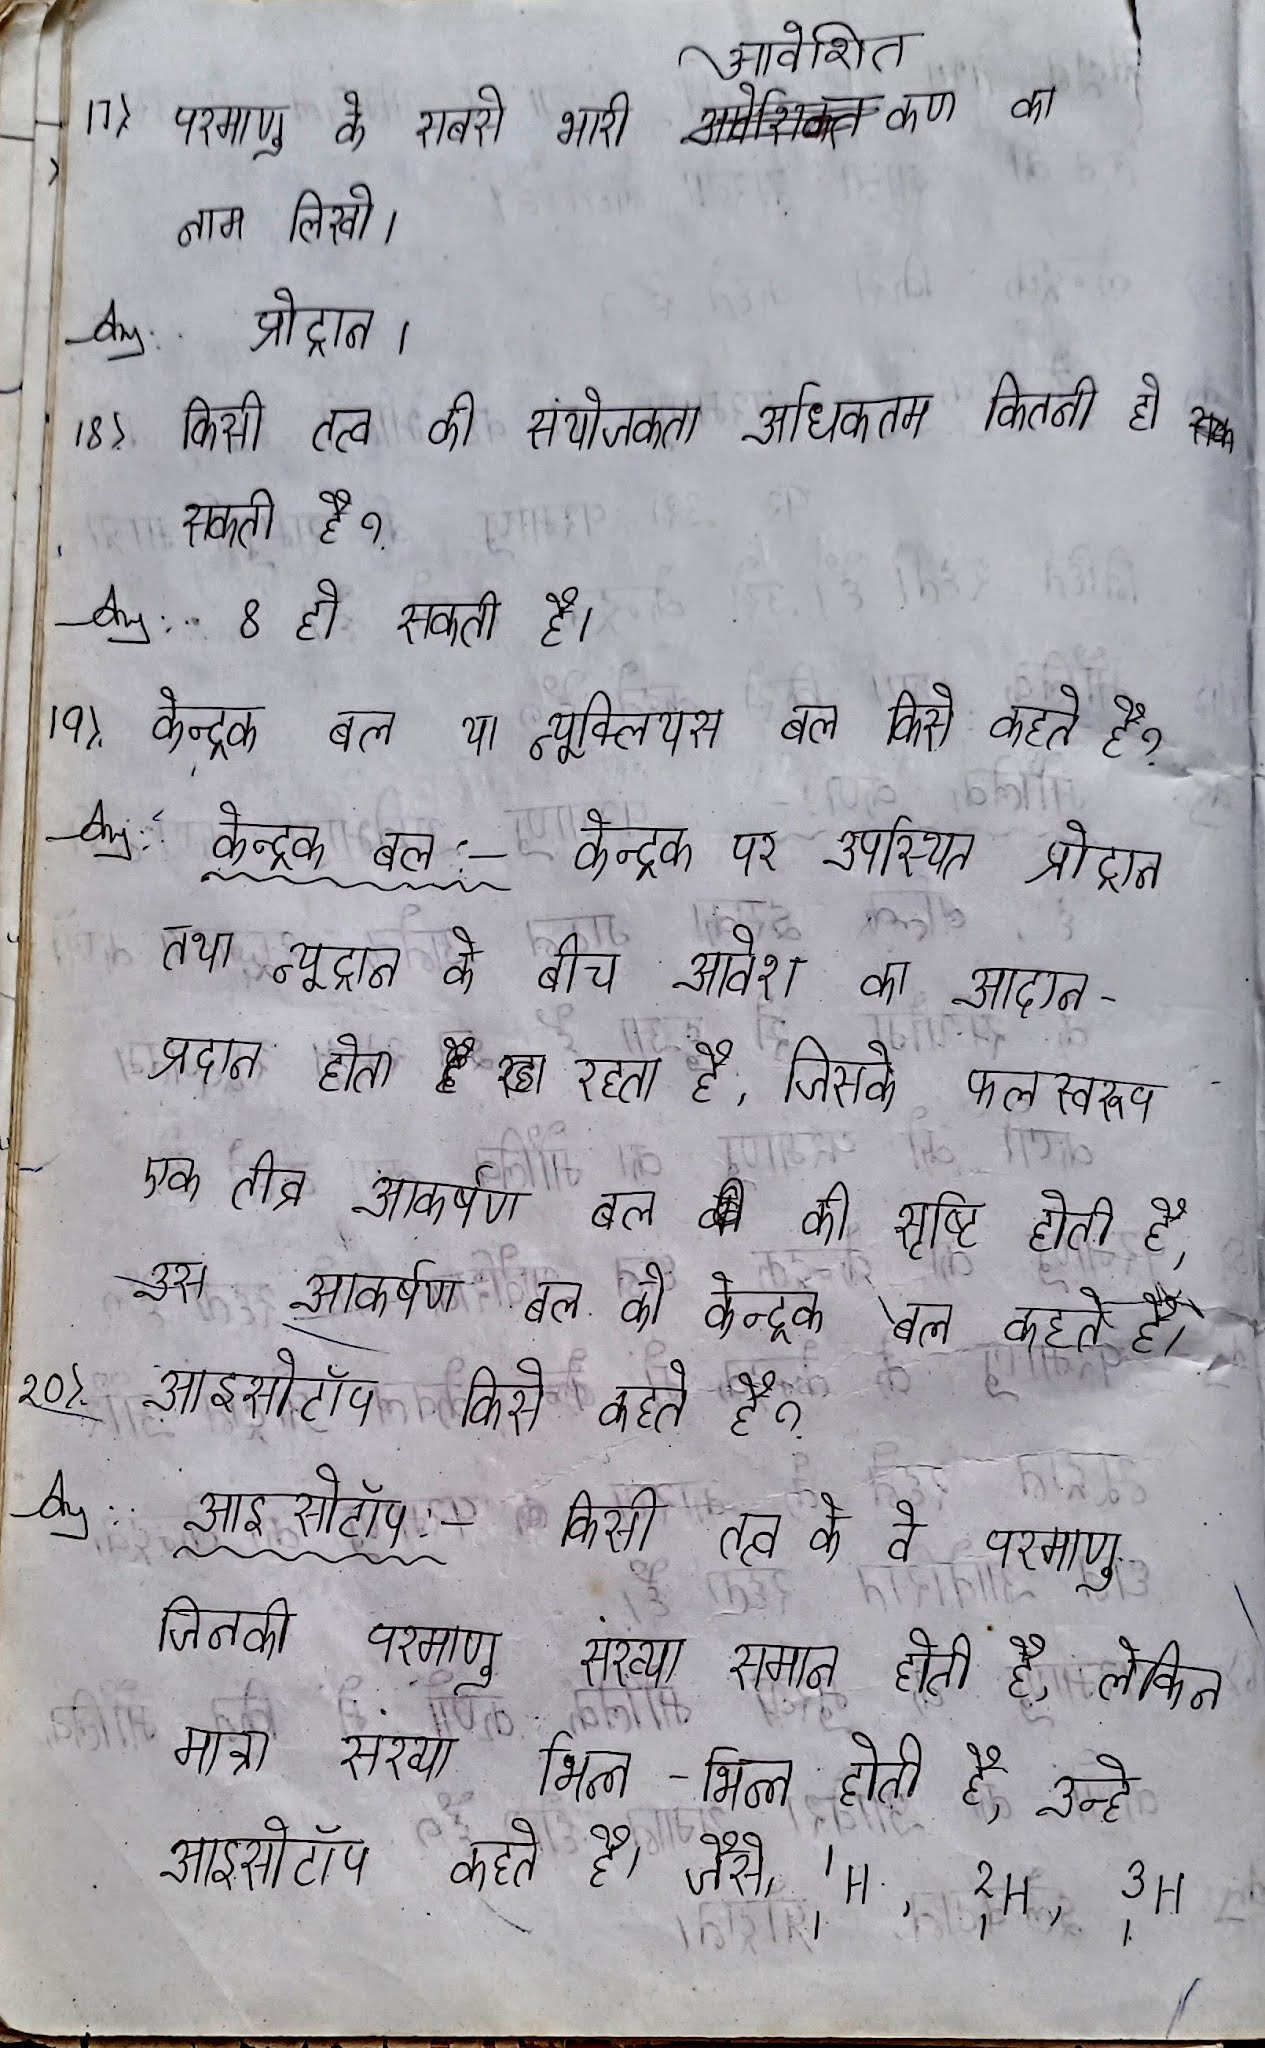 आवेशित
17) परमाणु के सबसे भारी कण का
नाम लिखो।
Ans:. प्रोट्रान।
18) किसी तत्व की संयोजकता अधिकतम कितनी हो
सकती है?
Ans:. 8 हो सकती है।
19) केन्द्रक बल या न्यूक्लियस बल किसे कहते है?
Ans: केन्द्रक बल :- केन्द्रक पर उपस्थित प्रोट्रान
तथा न्यूट्रान के बीच आवेश का आदान-
प्रदान होता रहता है, जिसके फलस्वरूप
एक तीव्र आकर्षण बल की सृष्टि होती है,
उस आकर्षण बल को केन्द्रक बल कहते है।
20) आइसोटॉप किसे कहते है?
Ans: आइसोटॉप :- किसी तत्व के वे परमाणु
जिनकी परमाणु संख्या समान होती है, लेकिन
मात्रा संख्या भिन्न-भिन्न होती है, उन्हे
आइसोटॉप कहते है। जैसे, ¹₁H, ²₁H, ³₁H